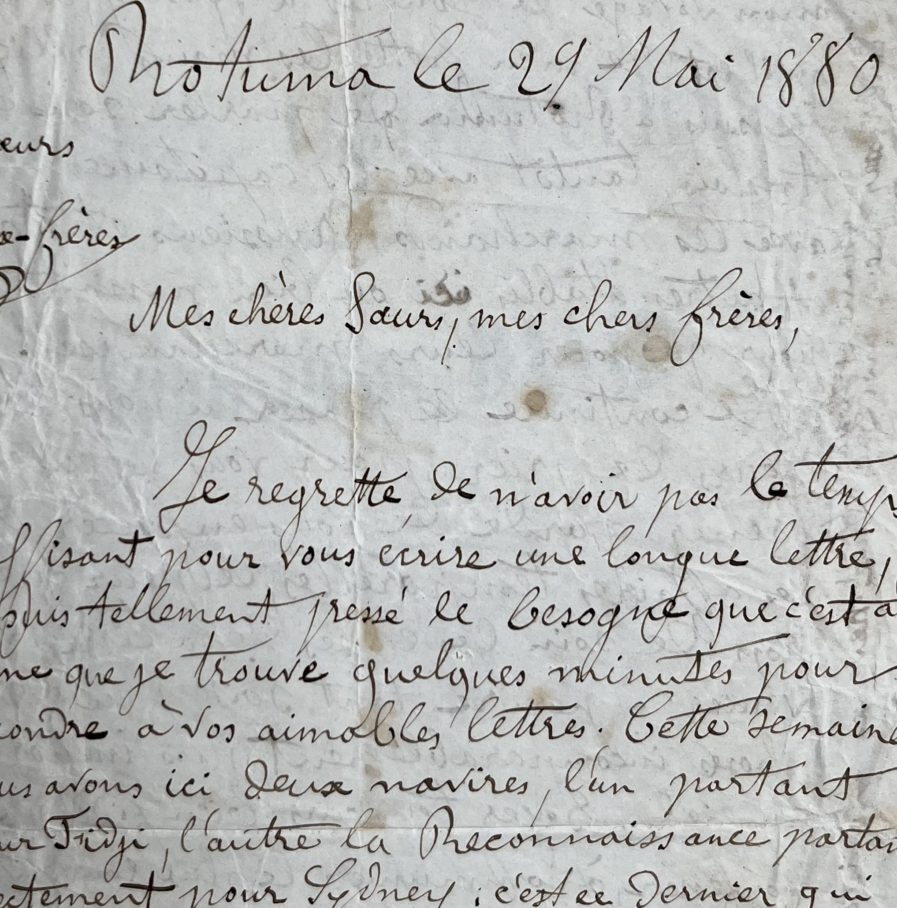 Rotuma le 29 Mai 1880
œurs
x-frères
Mes chères Sœurs, mes chers frères,
Je regrette de n'avoir pas le temps
ffisant pour vous écrire une longue lettre,
suis tellement pressé le besogne que c'est à
ne que je trouve quelques minutes pour
pondre à vos aimables lettres. Cette semaine
us avons ici deux navires, l'un partant
ur Fidji, l'autre la Reconnaissance partan
ectement pour Sydney ; c'est ce dernier qui